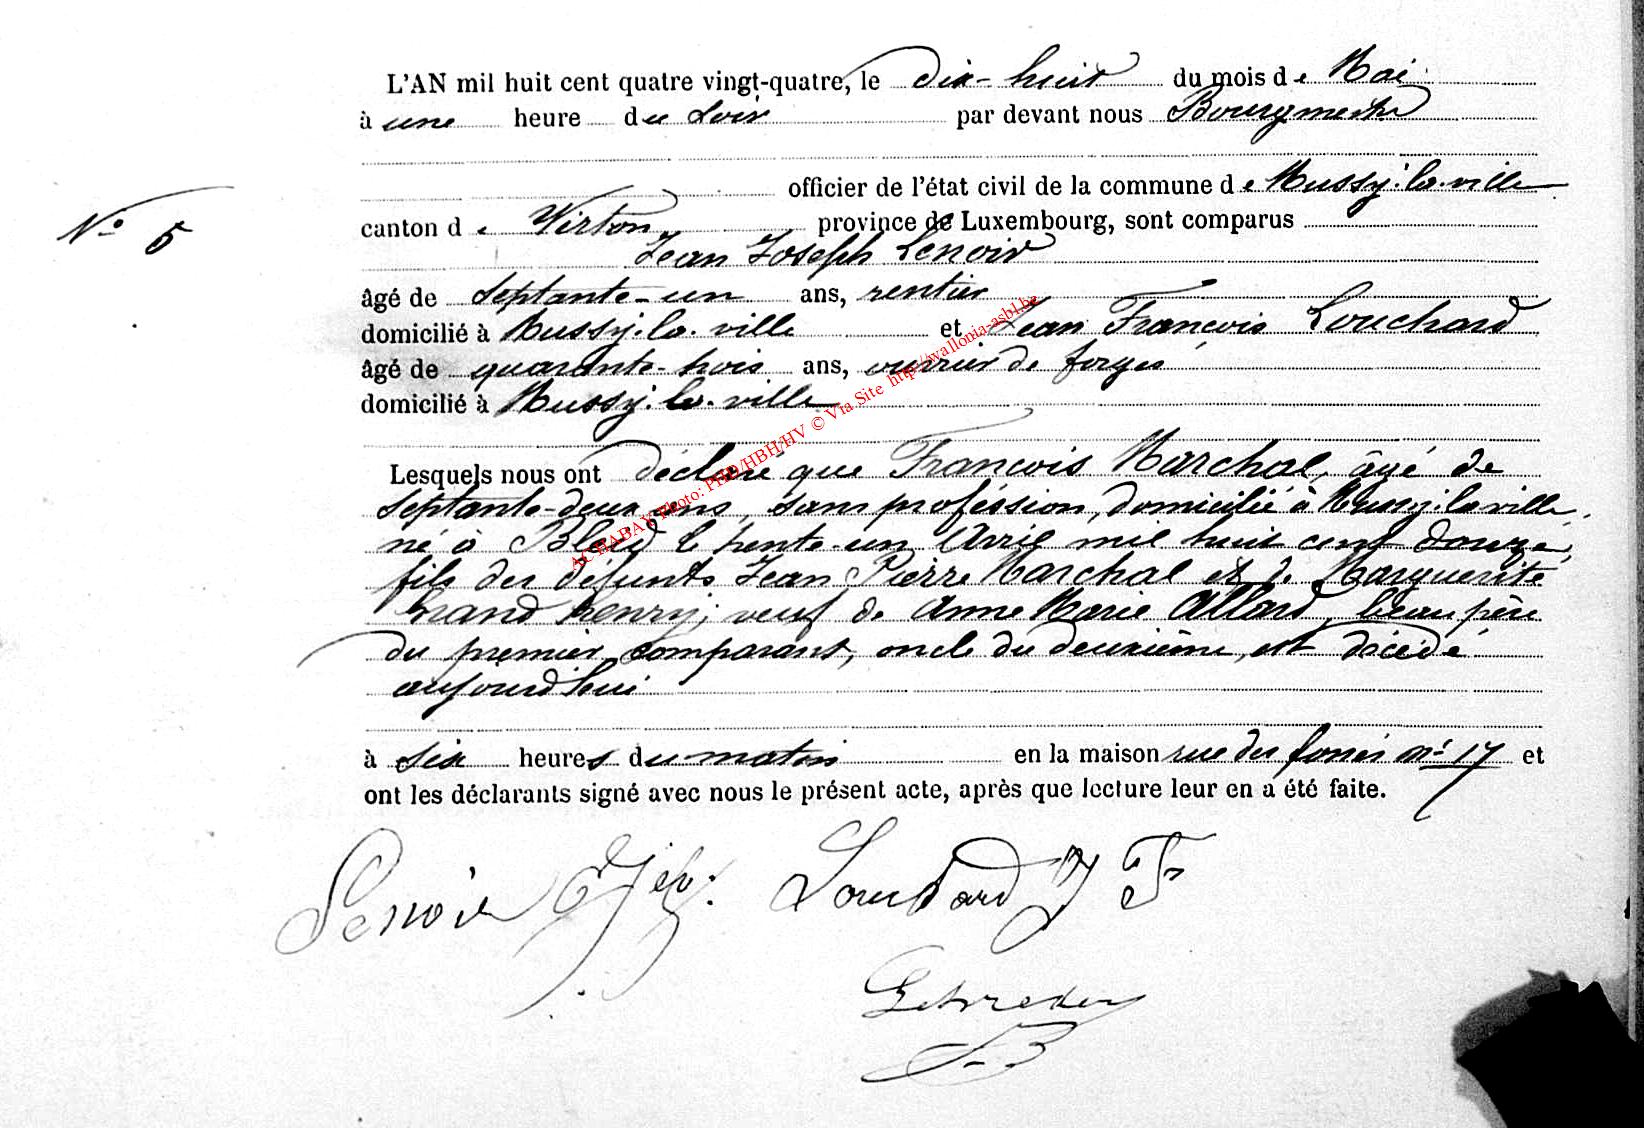 L'AN mil huit cent quatre vingt-quatre, le dix-huit du mois de Mai
à une heure du soir par devant nous Bourgmestre
officier de l'état civil de la commune de Mussy-la-ville
N° 5
canton de Virton province de Luxembourg, sont comparus
Jean Joseph Lenoir
âgé de septante-un ans, rentier
domicilié à Mussy-la-ville et Jean François Louchard
âgé de quarante-trois ans, ouvrier de forges
domicilié à Mussy-la-ville
Lesquels nous ont déclaré que François Marchal, âgé de
septante-deux ans, sans proféssion, domicilié à Mussy-la-ville,
né à Bleid le trente-un Avril mil huit cent douze,
fils des défunts Jean Pierre Marchal et de Marguerite
henry; veuf de Anne Marie Allard, beau père
du premier comparant, oncle du deuxième, est décédé
aujourd'hui
à six heures du matin en la maison rue des n° 17 et
ont les déclarants signé avec nous le présent acte, après que lecture leur en a été faite.
Lenoir Louchard J F
ACHABAY Photo: PHD/HBH/HV © Via Site http://wallonia-asbl.be